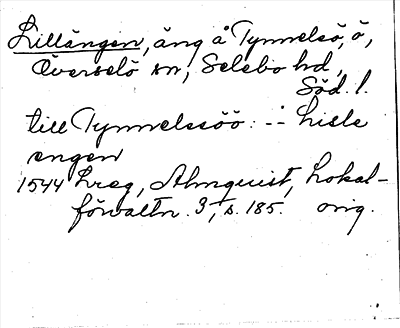 Lillängen, äng å Tynnelsö, ö,
Överselö sn, Selebo hd,
Söd. l.
till Tynnelssöö: ∴ lisle
engen
1544 Lreg, Almquist, Lokal-
förvaltn. 3, s. 185. orig.